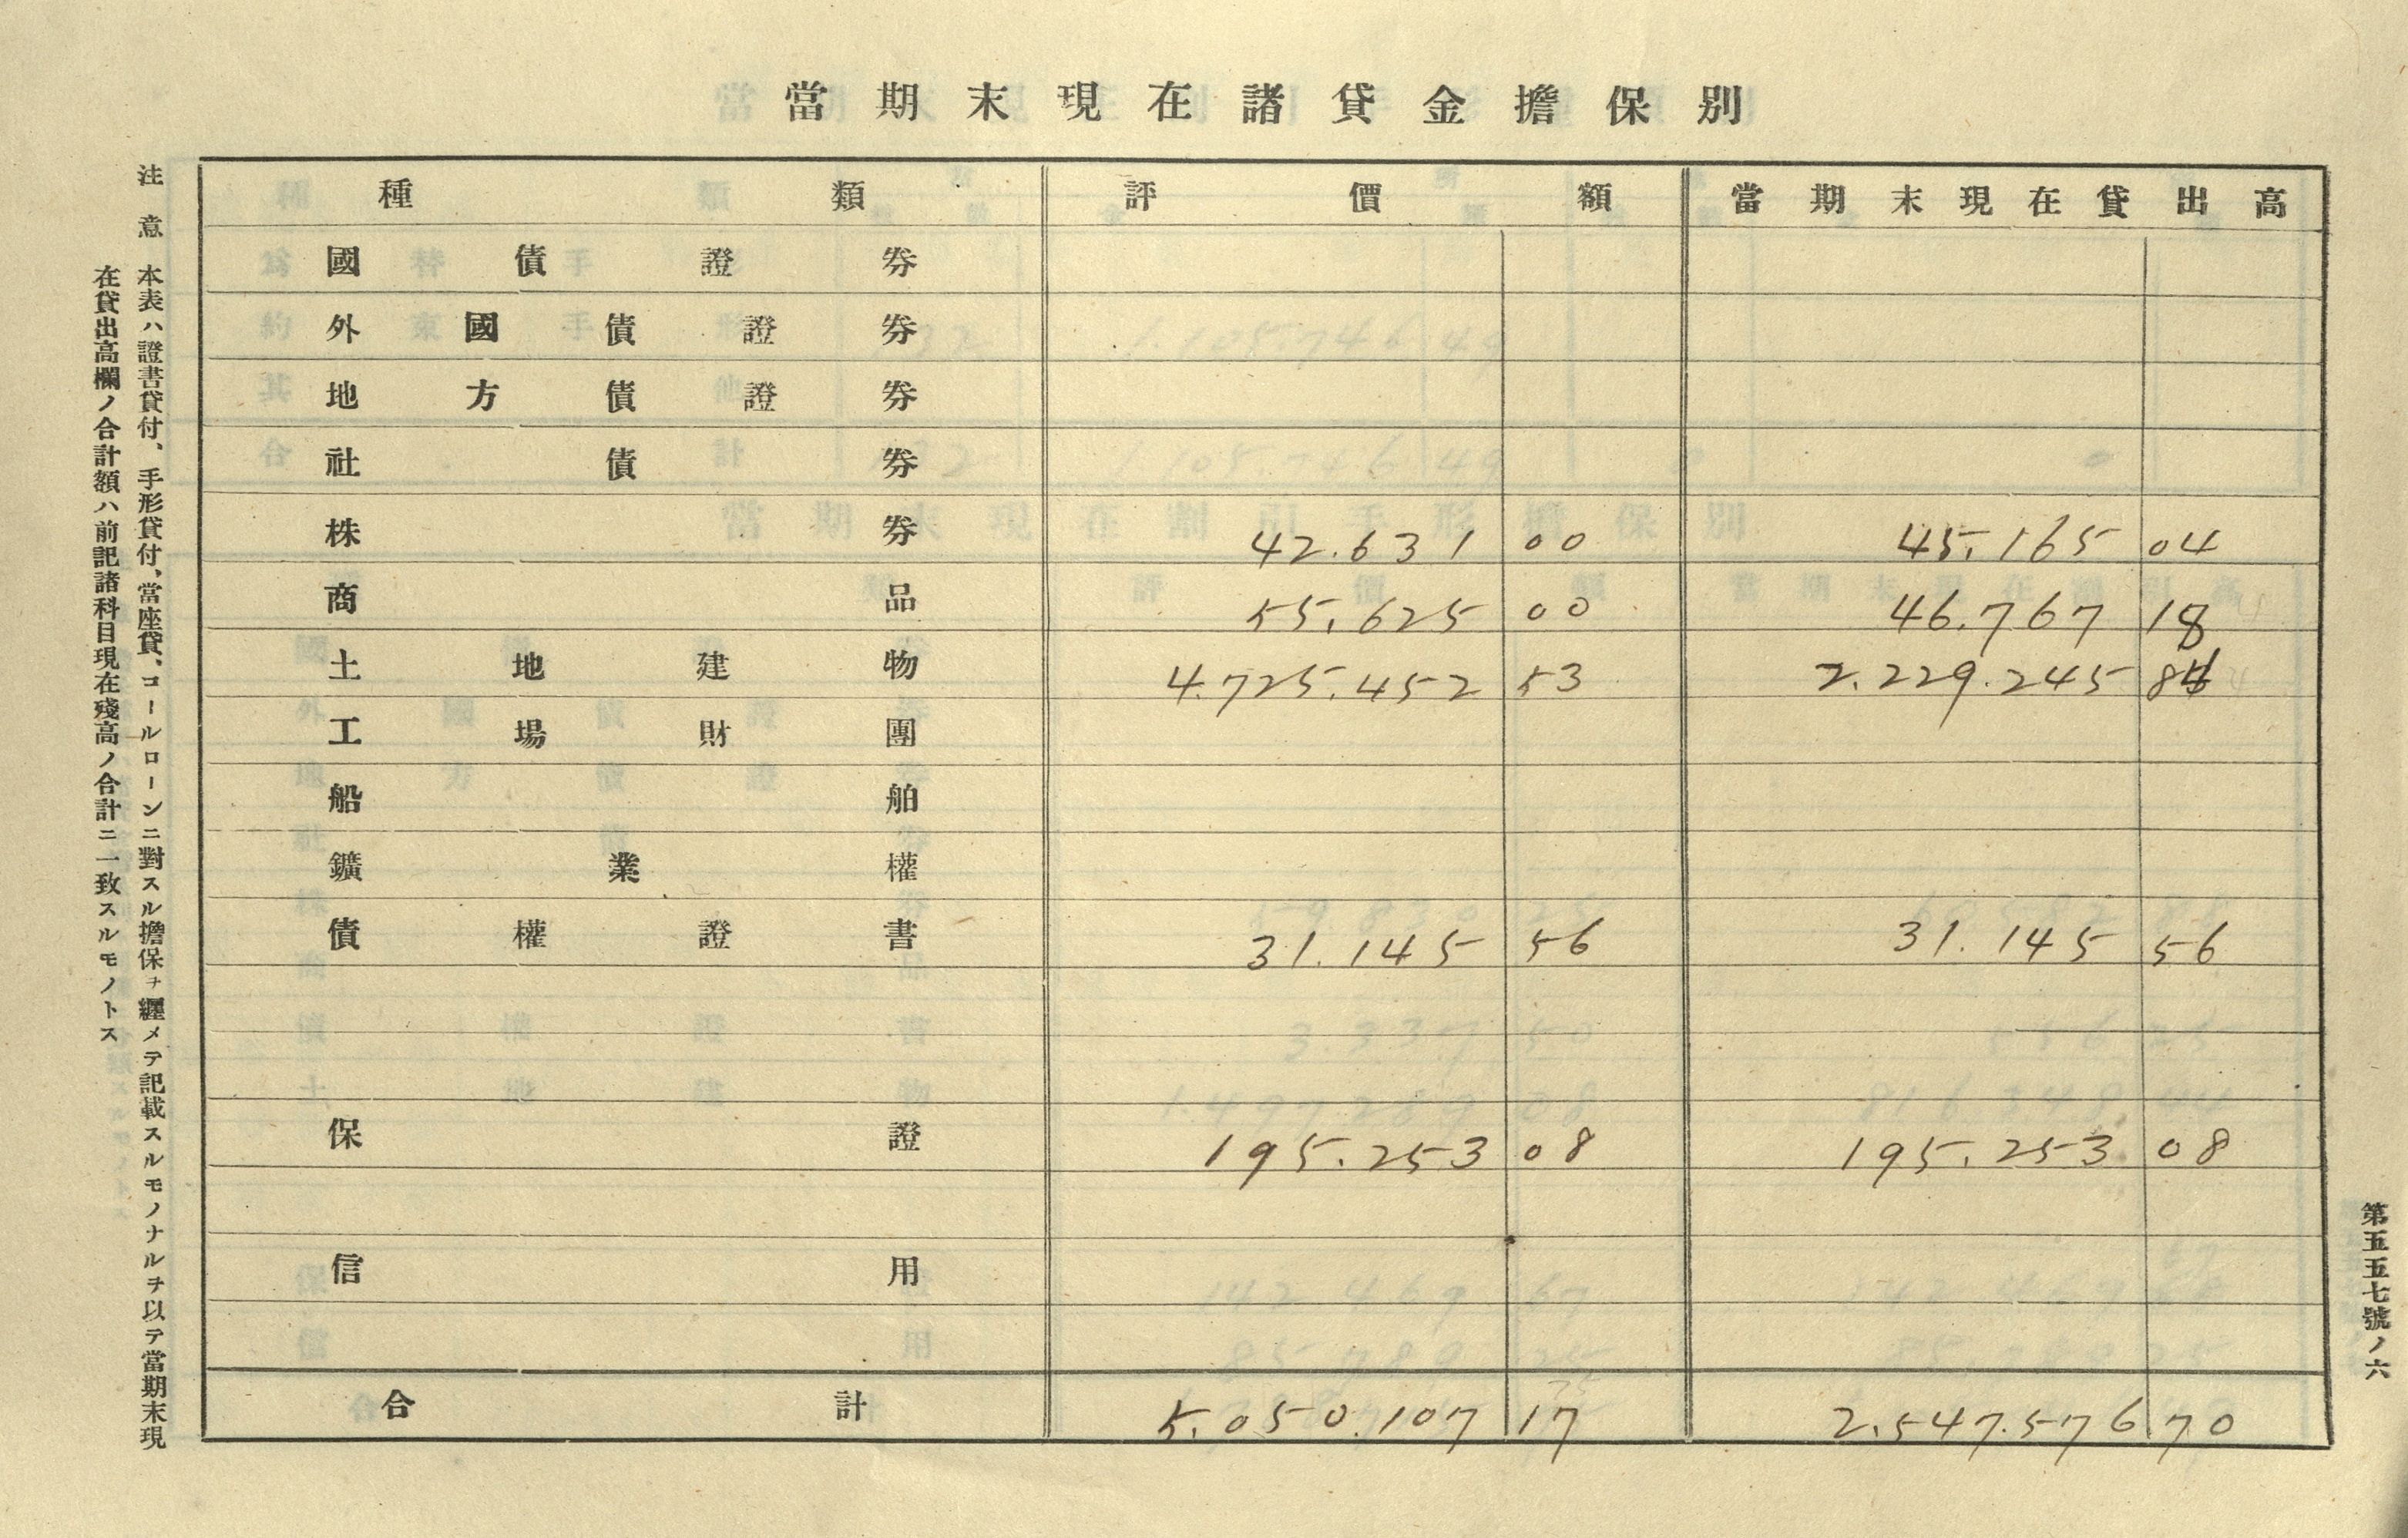 當期末現在諸貸金擔保別
種類 評價額 當期末現在貸出高
國債證券
外國債證券
地方債證券
社債券
株券 42.631 00 45.165 04
商品 55.625 00 46.767 18
土地建物 4.725.452 53 2.229.245 84
工場財團
船舶
鑛業權
債權證書 31.145 56 31.145 56
保證 195.253 08 195.253 08
信用
合計 5.050.107 17 2.547.576 70
注意 本表ハ證書貸付、手形貸付、當座貸、コールローンニ對スル擔保ヲ纒メテ記載スルモノナルヲ以テ當期末現
在貸出高欄ノ合計額ハ前記諸科目現在殘高ノ合計ニ一致スルモノトス
第五五七號ノ六